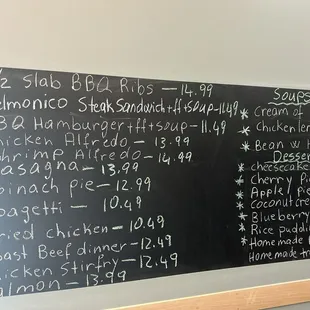 /2 Slab BBQ Ribs — 14.99
elmonico Steak Sandwich+ff+soup-11.49
BQ Hamburger+ff+soup-11.49
hicken Alfredo - 13.99
hrimp Alfredo - 14.99
asagna - 13.99
pinach pie - 12.99
pagetti - 10.49
ried chicken - 10.49
oast Beef dinner - 12.49
icken Stirfry - 12.49
almon - 13.99
Soups
* Cream of
* Chicken len
* Bean w H
Desser
* cheesecake
* Cherry Pi
* Apple pi
* Coconut cre
* Blueberry
* Rice puddi
* Homemade
Homemade tr